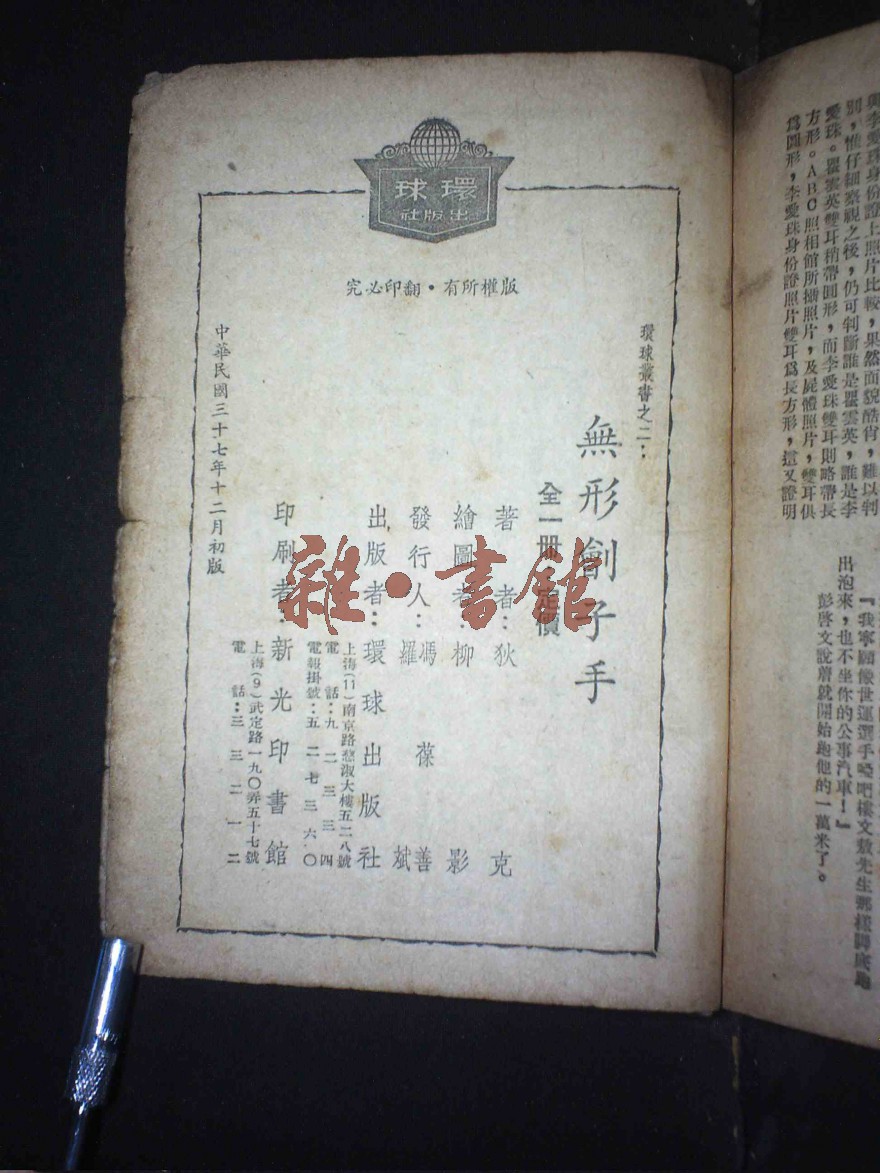 與李愛珠身份證上照片比較，果然面貌酷肖，難以判
別，惟仔細察視之後，仍可判斷誰是瞿雲英，誰是李
愛珠。瞿雲英雙耳稍帶圓形，而李愛珠雙耳則略帶長
方形。ABC照相館所攝照片，及屍體照片，雙耳俱
爲圓形，李愛珠身份證照片雙耳爲長方形，這又證明
『我寧願做世運選手啞吧樓文敖先生那樣脚底跑
出泡來，也不坐你的公事汽車！』
彭啓文說着就開始跑他的一萬米了。
環球
出版社
版權所有・翻印必究
環球叢書之二：
無形劊子手
全一冊 定價
著者：狄克
繪圖者：柳影
發行人：馮葆善
羅斌
出版者：環球出版社
上海(11)南京路慈淑大樓五二八號
電話：九二三三四
電報掛號：五二七三六〇
印刷者：新光印書館
上海(9)武定路一九〇弄五十七號
電話：三三二一二
中華民國三十七年十二月初版
雜・書館